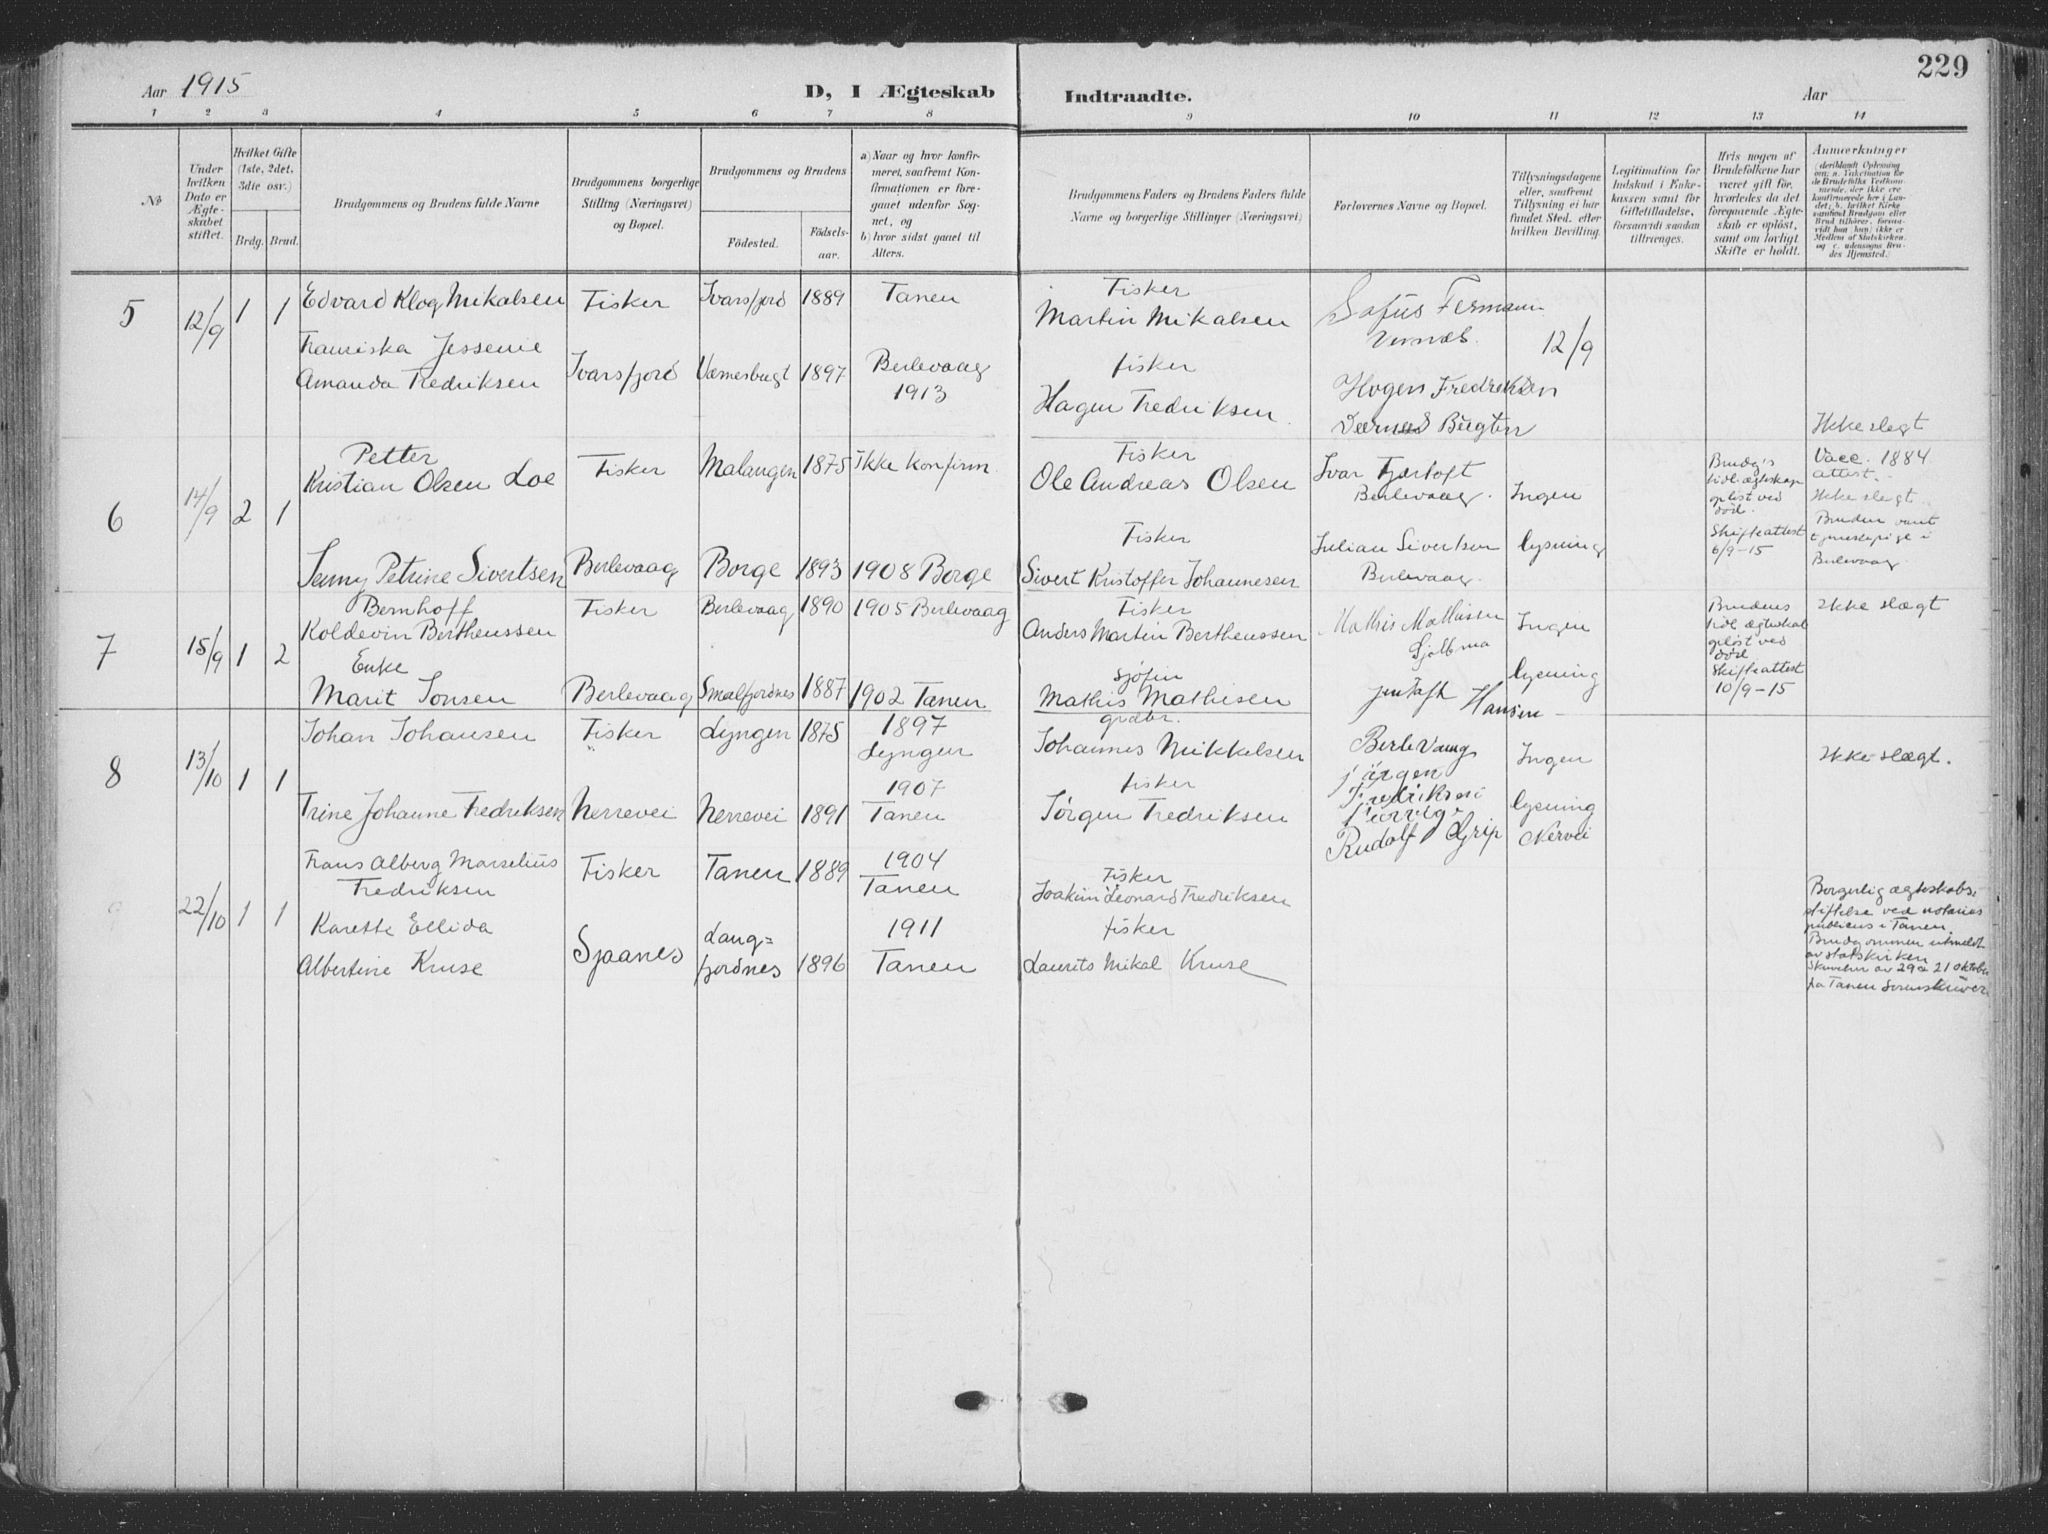 229
Aar 1915
D, I Ægteskab Indtraadte.
Aar
1 2 3 4 5 6 7 8 9 10 11 12 13 14
No
Under
hvilken
Dato er
Ægte-
skabet
stiftet.
Hvilket Gifte
(1ste, 2det,
3die osv.)
Brdg. Brud.
Brudgommens og Brudens fulde Navne
Brudgommens borgerlige
Stilling (Næringsvei)
og Bopæl.
Brudgommens og Brudens
Fødested.
Fødsels-
aar.
a) Naar og hvor konfir-
meret, saafremt Kon-
firmationen er fore-
gaaet udenfor Sog-
net, og
b) hvor sidst gaaet til
Alters.
Brudgommens Faders og Brudens Faders fulde
Navne og borgerlige Stillinger (Næringsvei)
Forlovernes Navne og Bopæl.
Tillysningsdagene
eller, saafremt
Tillysning ei har
fundet Sted, efter
hvilken Bevilling.
Legitimation for
Indskud i Enke-
kassen samt for
Giftetilladelse,
forsaavidt saadan
tiltrænges.
Hvis nogen af
Brudefolkene har
været gift før,
hvorledes da det
foregaaende Ægte-
skab er opløst,
samt om lovligt
Skifte er holdt.
Anmærkninger
(deriblandt Oplysning
om: a. Vakcination for
de Brudefolks Vedkom-
mende, der ikke ere
konfirmerede her i Lan-
det; b. hvilket Kirke
samfund Brudgom eller
Brud tilhører, forsaa-
vidt han (hun) ikke er
Medlem af Statskirken,
og c. udensogns Bru-
des Hjemsted.)
5 12/9 1 1 Edvard Klog Mikalsen Fisker Ivarsfjord 1889 Tanen
Fisker
Martin Mikalsen
Sofus Fermann
12/9
Franciska Jessenie
Amanda Fredriksen Ivarsfjord Værnesbugt 1897 Berlevaag
1913
fisker
Hagen Fredriksen
Hagen Fredriksen
Værnes Bugten
Ikke slegt
6 14/9 2 1 Petter
Kristian Olsen Loe Fisker Malangen 1875 Ikke konfirm.
Fisker
Ole Andreas Olsen
Ivar Fjærtoft
Berlevaag.
Ingen
lysning
Brudg's
tidl. ægteskap
opløst ved
død.
Skifteattest
6/9-15
Vacc. 1884
attest.
Ikke slegt
Bruden vant
tjenestepige i
Berlevaag
Jenny Petrine Sivertsen Berlevaag Borge 1893 1908 Borge
Fisker
Sivert Kristoffer Johannesen
Julian Sivertsen
Berlevaag.
7 15/9 1 2 Bernhoff
Koldevin Bertheussen Fisker Berlevaag 1890 1905 Berlevaag
Fisker
Anders Martin Bertheussen
Mathis Mathisen
Ingen
lysning
Brudens
tidl. ægteskab
opløst ved
død
Skifteattest
10/9-15
Ikke slægt
Enke
Marit Jonsen Berlevaag Smalfjordnes 1887 1902 Tanen
sjøfin
Mathis Mathisen
Hansen
8 13/10 1 1 Johan Johansen Fisker Lyngen 1875 1897
Lyngen
grdbr.
Johannes Mikkelsen
Berlevaag
Ingen
lysning
Ikke slægt.
Trine Johanne Fredriksen Nerrevei Nerrevei 1891 1907
Tanen
fisker
Jørgen Fredriksen
jørgen
Fredriksen
Rudolf Grip Nervei
9 22/10 1 1 Frans Alberg Marselius
Fredriksen Fisker Tanen 1889 1904
Tanen
Fisker
Joakim Leonard Fredriksen
Karette Ellida
Albertine Kruse Sjaanes Lang=
fjordnes 1896 1911
Tanen
fisker
Laurits Mikal Kruse
Borgerlig ægteskabs-
stiftelse ved notarius
publicus i Tanen.
Brudgommen utmeldt
av statskirken
Skrivelser av 29 a 21 oktober
fra Tanen Sorenskriver